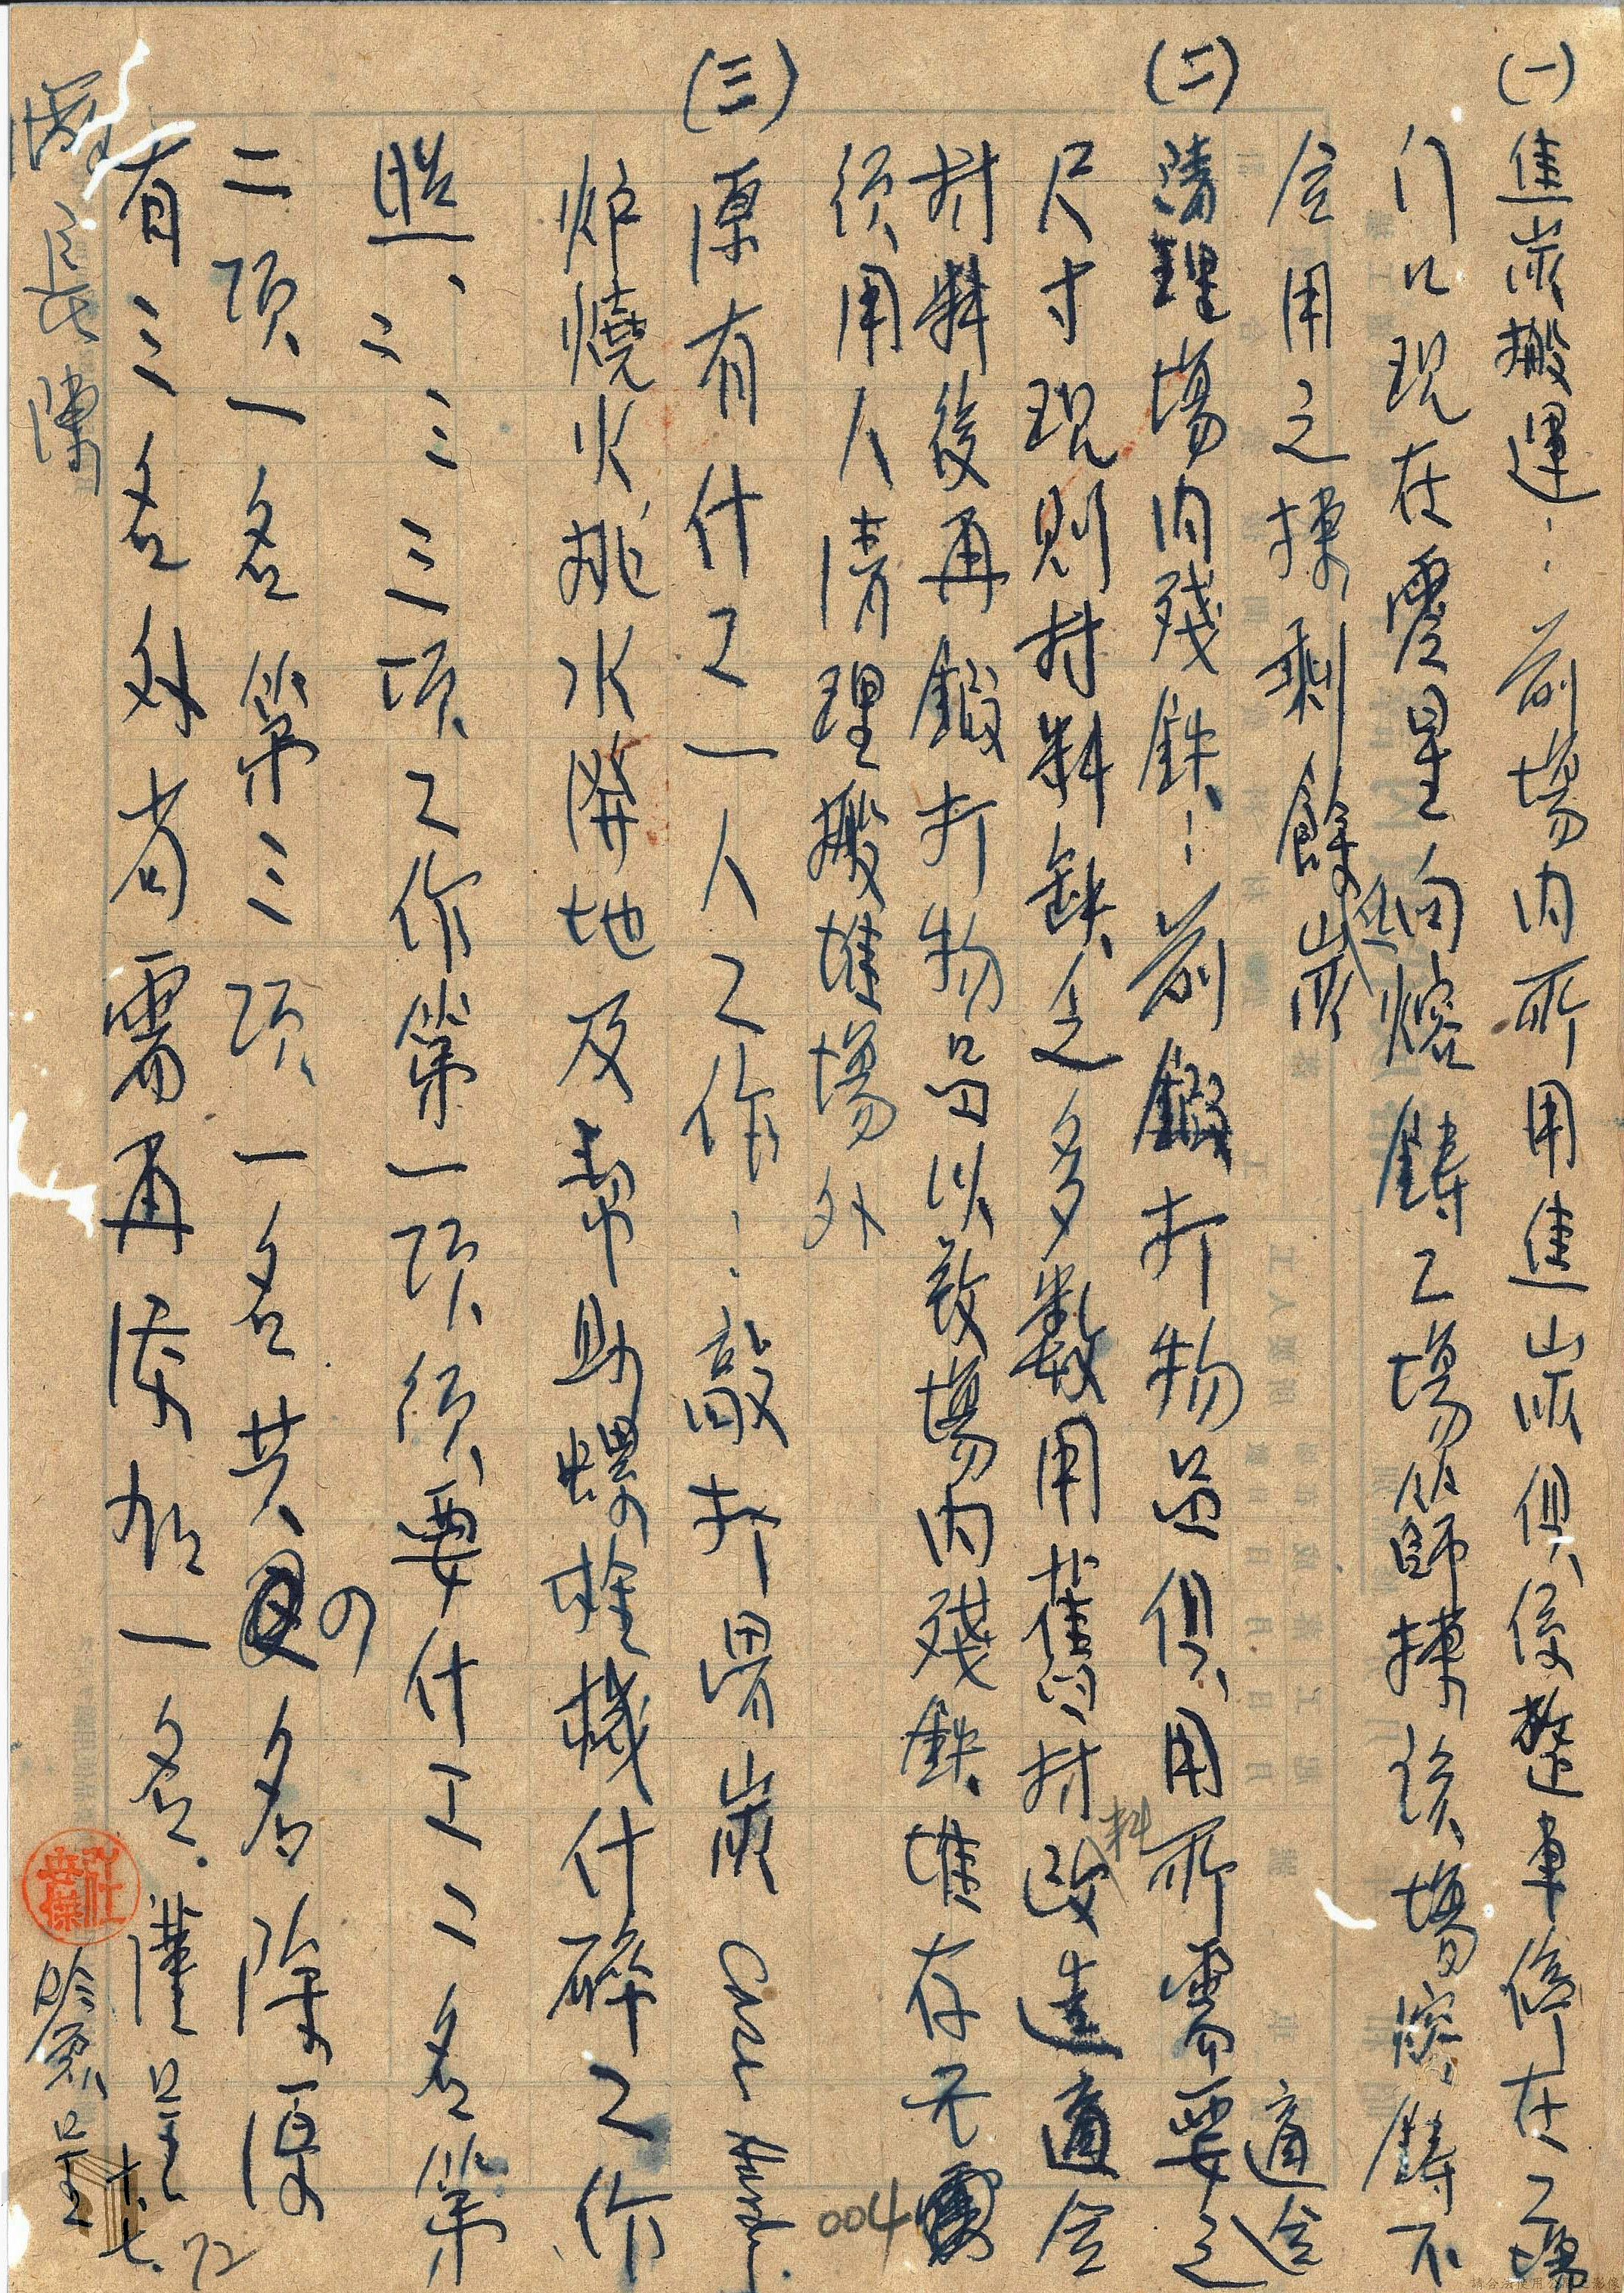 (一)焦炭搬運：前場内所用焦炭俱係整車停在工場
门口現在零星向熔鑄工場篩揀該場熔鑄不
適合
合用之揀剩餘焦炭
(二)清理場内殘鉄：前鍛打物品俱用所需要之
尺寸現則材料缺乏多数用舊材料改造適合
材料後再鍛打物品以致場内殘鉄堆存无數
須用人清理搬堆場外
(三)原有什工一人工作：敲打畀炭
炉燒火挑水掃地及幫助螺栓機什碎工作
照一、二、三三項工作第一項須要什工二名第
二項一名第三項一名共の名除原
有三名外尚需再添加一名. 謹呈
廠長陳
杜岳傑 簽呈 七
004
72